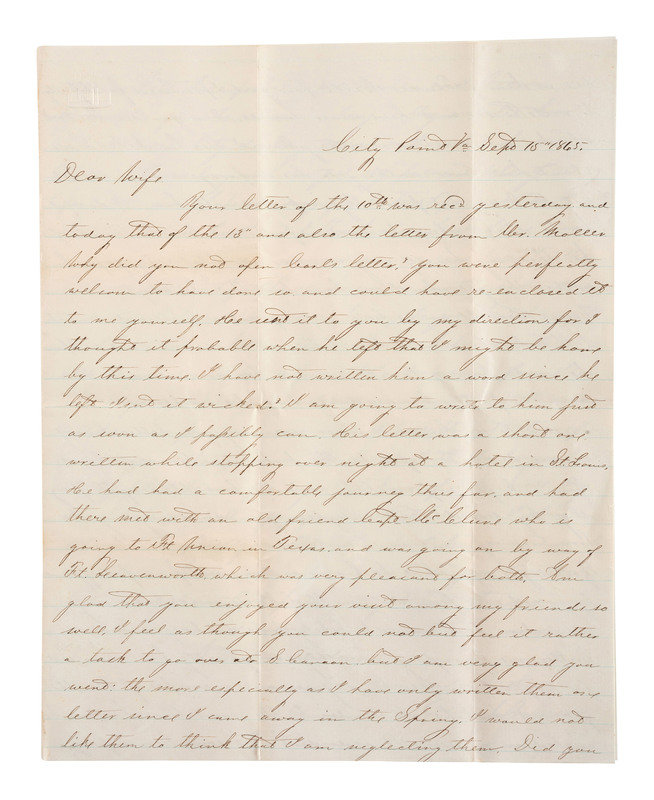 City Point Va Sept 15" 1865.
Dear Wife
Your letter of the 10th was recd yesterday and
today that of the 13" and also the letter from Mr.
Why did you not open letter? you were perfectly
welcom to have done so, and could have re-enclosed it
to me yourself. He sent it to you by my direction, for I
thought it probable when he left that I might be home
by this time. I have not written him a word since he
left. Isnt it wicked? I am going to write to him just
as soon as I possibly can. His letter was a short one
written while stopping over night at a hotel in St. Louis.
He had had a comfortable journey thus far, and had
there met with an old friend Capt. McClure who is
going to Ft. Union in Texas, and was going on by way of
Ft. Leavenworth, which was very pleasant for both. I'm
glad that you enjoyed your visit among my friends so
well. I feel as though you could not but feel it rather
a task to go over to Sharon, but I am very glad you
went: the more especially as I have only written them one
letter since I came away in the Spring. I would not
like them to think that I am neglecting them. Did you